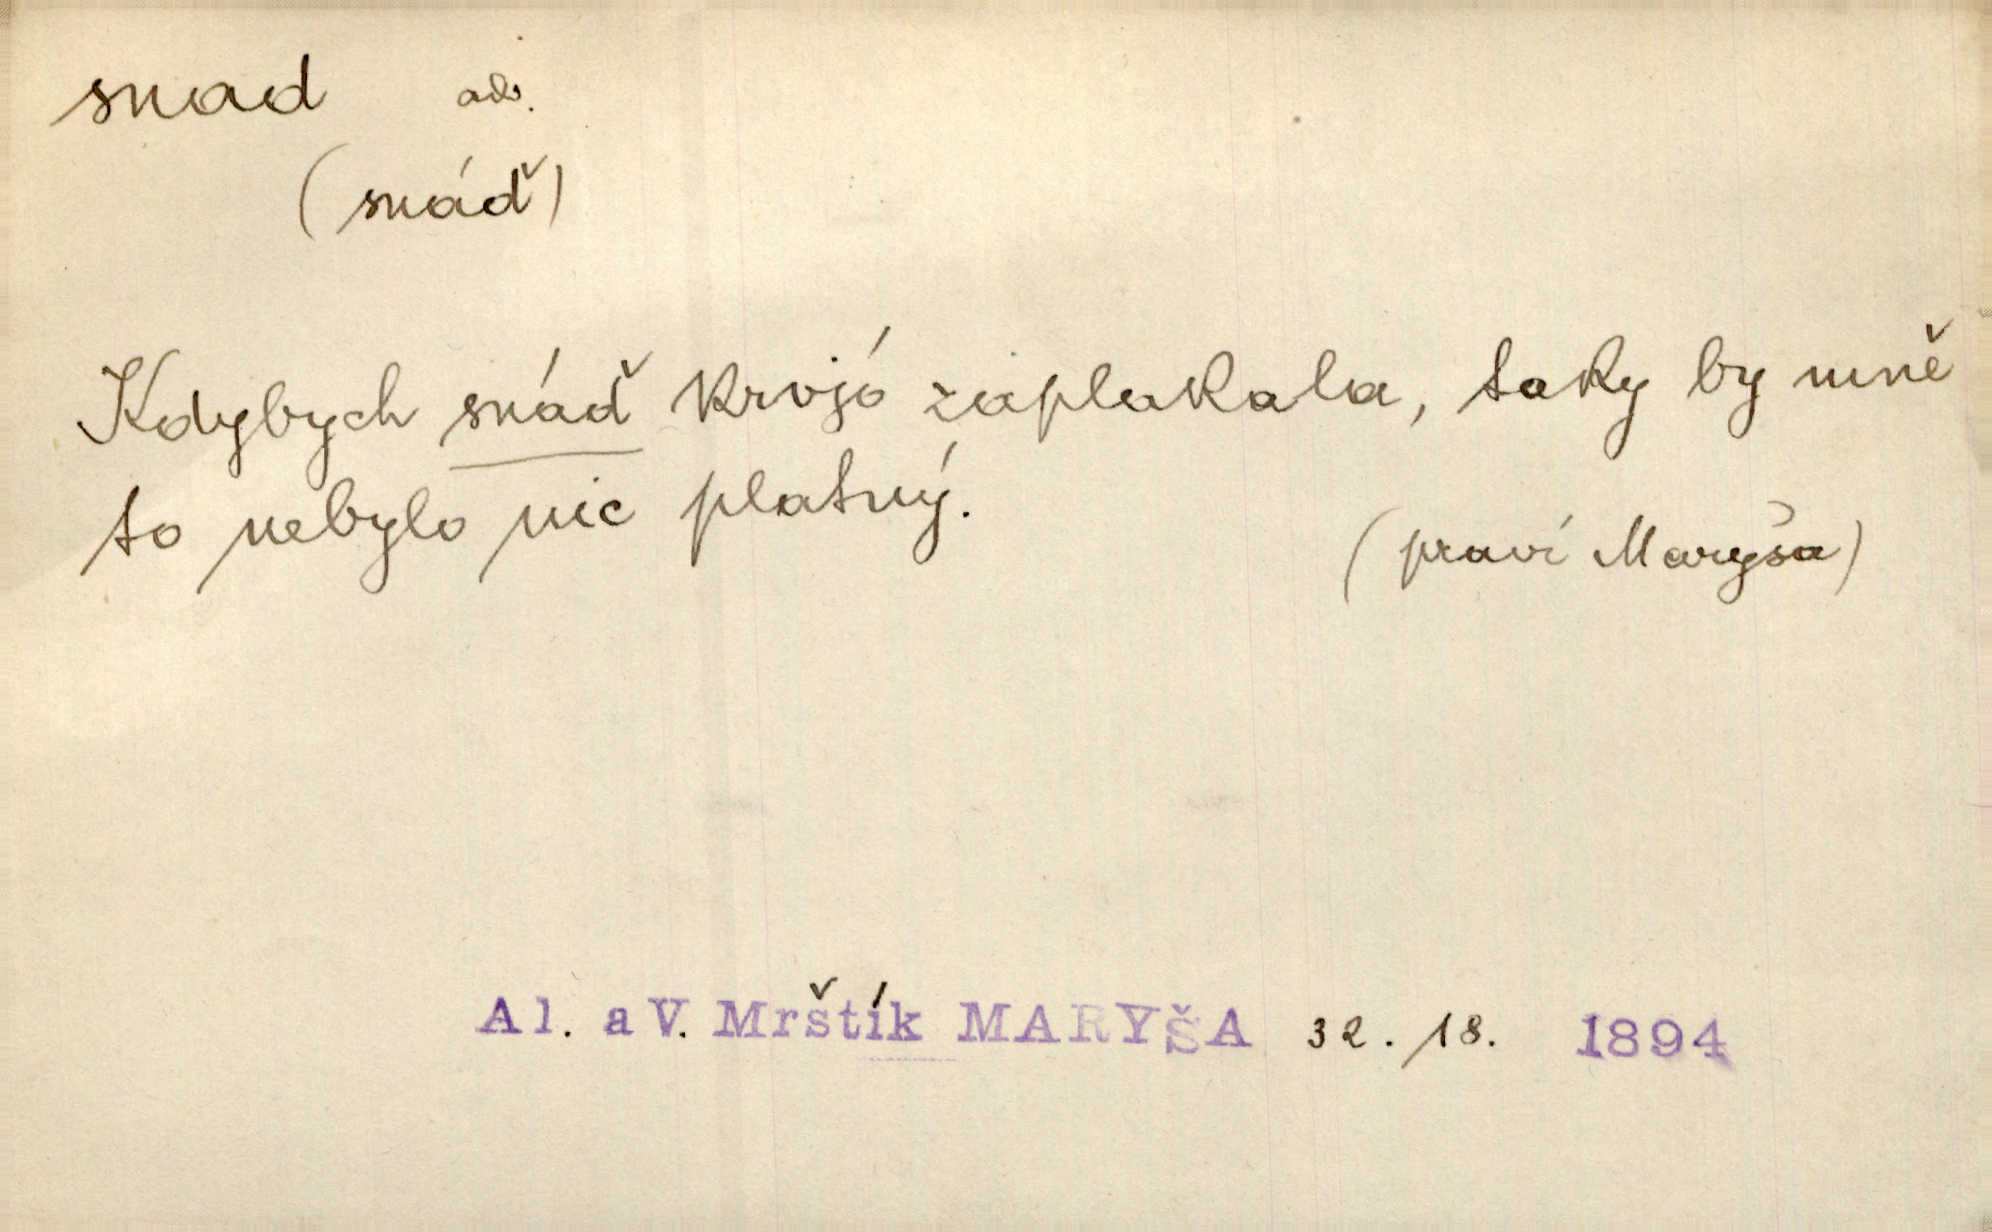 snad adv.
(snáď)
Kdybych snáď krvjó zaplakala, taky by mně
to nebylo nic platný.
(praví Maryša)
Al. a V. Mrštík MARYŠA 32. 18. 1894